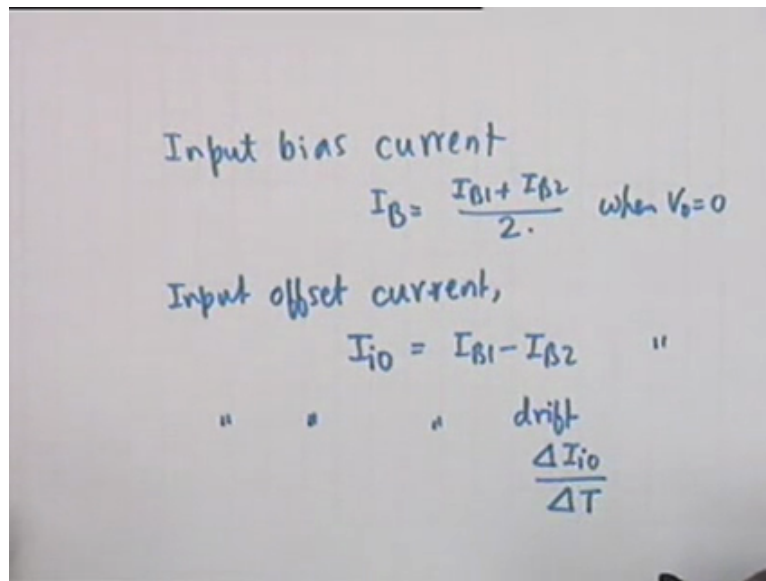 Input bias current
I_B = (I_B1 + I_B2) / 2. when V_0 = 0
Input offset current,
I_io = I_B1 - I_B2 "
" " " drift
ΔI_io / ΔT